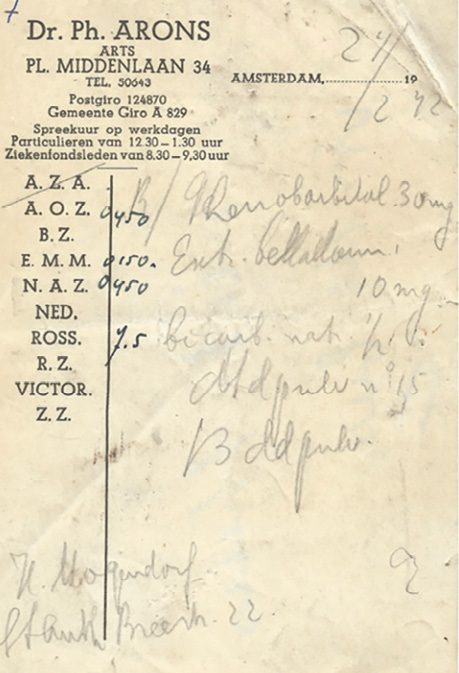 Dr. Ph. ARONS
ARTS
PL. MIDDENLAAN 34
TEL. 50643
AMSTERDAM, 19
Postgiro 124870
Gemeente Giro A 829
Spreekuur op werkdagen
Particulieren van 12.30–1.30 uur
Ziekenfondsleden van 8.30–9,30 uur
24/
/2 42
A. Z. A.
R/ Phenobarbital. 30 mg
A. O. Z. 0450
B. Z.
E. M. M. 0150.
Extr. bellladonn.
N. A. Z. 0450
10 mg
NED.
ROSS. 7.5
bicarb. natr. 1/2
R. Z.
dtd pulv no 15
VICTOR.
Z. Z.
dd pulv.
Breestr. 22.